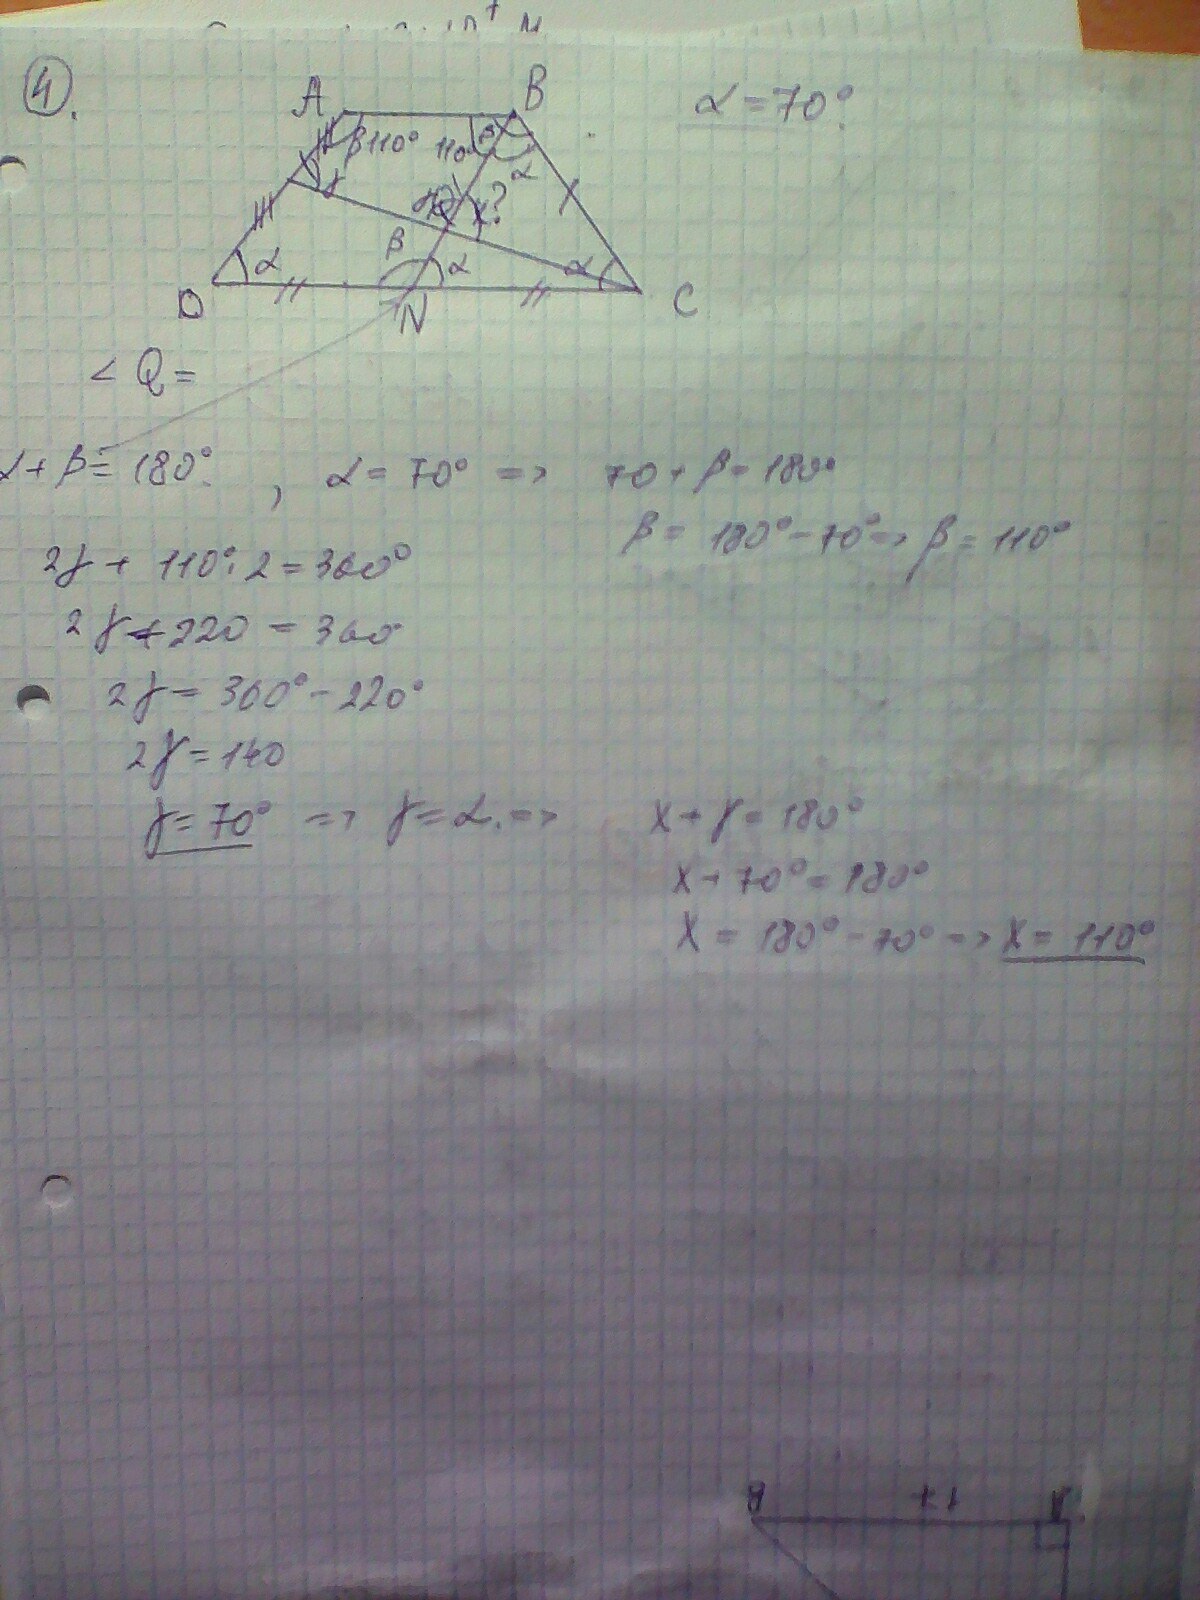 4.
A B α = 70°.
β 110° 110° β
α
γ Q x?
β
α α α
D N C
< Q =
α + β = 180°. , α = 70° => 70 + β = 180°
β = 180° - 70° => β = 110°
2γ + 110° · 2 = 360°
2γ + 220 = 360
2γ = 360° - 220°
2γ = 140
γ = 70° => γ = α. => x + γ = 180°
x + 70° = 180°
x = 180° - 70° => x = 110°